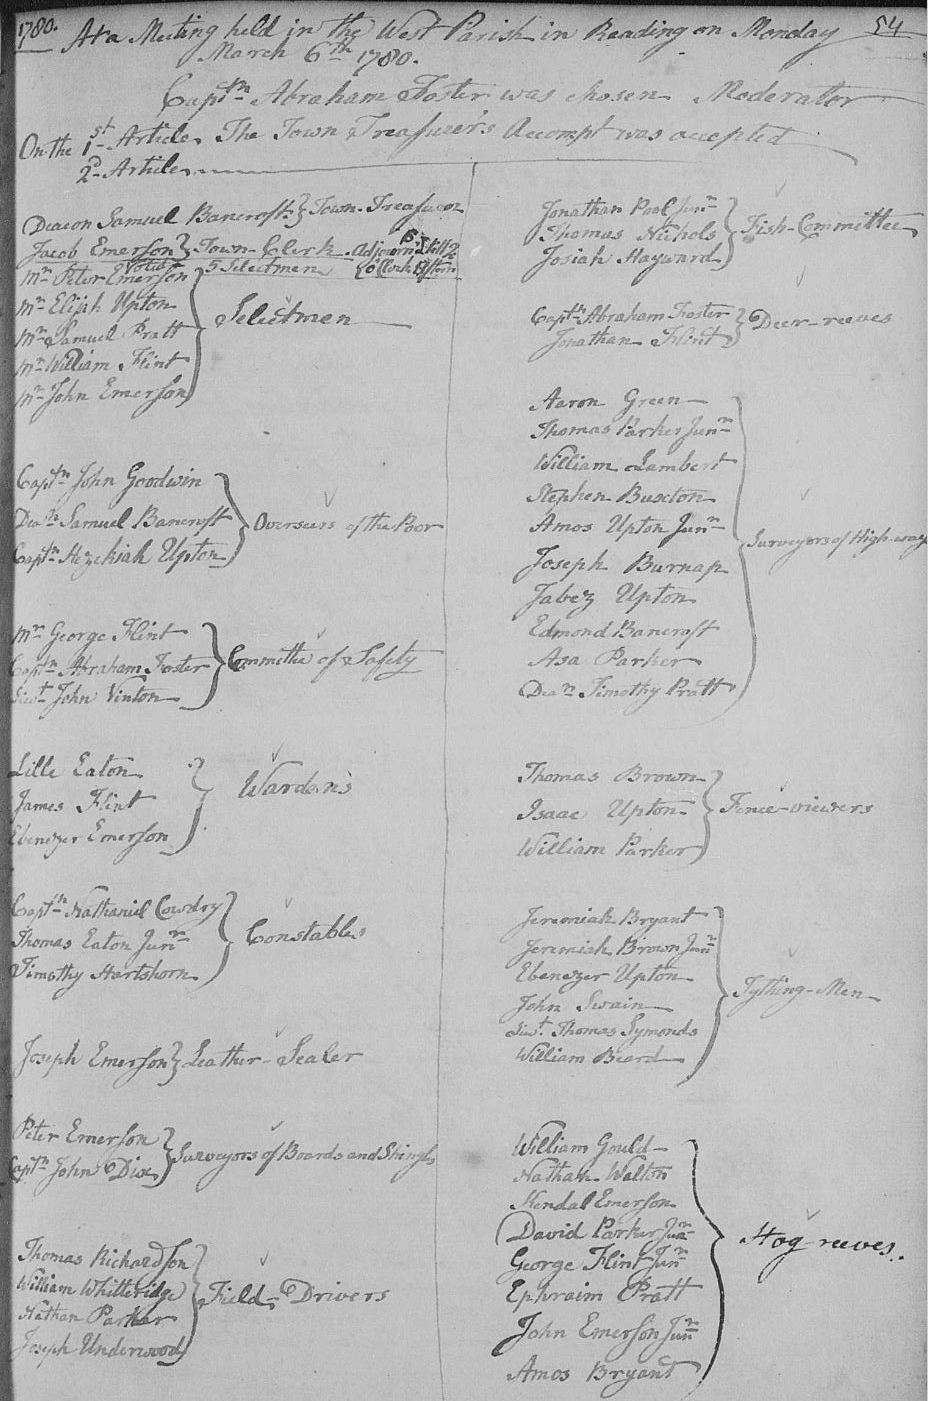 1780.
54
At a Meeting held in the West Parish in Reading on Monday
March 6th 1780.
Captn Abraham Foster was chosen Moderator
On the 1st Article. The Town Treasurer's Accompt was accepted
2d Article
Deacon Samuel Bancroft } Town-Treasurer
Jacob Emerson } Town-Clerk Adjourn'd till 2
Voted 5 Selectmen o'Clock
Mr Peter Emerson
Mr Elijah Upton
Mr Samuel Pratt
Mr William Flint
Mr John Emerson
Selectmen
Captn John Goodwin
Dean Samuel Bancroft
Captn Hezekiah Upton
Overseers of the Poor
Mr George Flint
Captn Abraham Foster
Lieut John Vinton
Committee of Safety
Lille Eaton
James Flint
Ebenezer Emerson
Wardens
Captn Nathaniel Cowdry
Thomas Eaton Junr
Timothy Hartshorn
Constables
Joseph Emerson } Leather-Sealer
Peter Emerson
Captn John Dix
Surveyors of Boards and Shingls
Thomas Richardson
William Whitteridge
Nathan Parker
Joseph Underwood
Field-Drivers
Jonathan Pool Junr
Thomas Nichols
Josiah Hayward
Fish-Committee
Captn Abraham Foster
Jonathan Flint
Deer-reeves
Aaron Green
Thomas Parker Junr
William Lambert
Stephen Buxton
Amos Upton Junr
Joseph Burnap
Jabez Upton
Edmond Bancroft
Asa Parker
Dean Timothy Pratt
Surveyors of High-ways
Thomas Brown
Isaac Upton
William Parker
Fence-viewers
Jeremiah Bryant
Jeremiah Brown Junr
Ebenezer Upton
John Swain
Lieut Thomas Symonds
William Beard
Tything-Men
William Gould
Nathan Walton
Kendal Emerson
David Parker Junr
George Flint Junr
Ephraim Pratt
John Emerson Junr
Amos Bryant
Hog reeves.